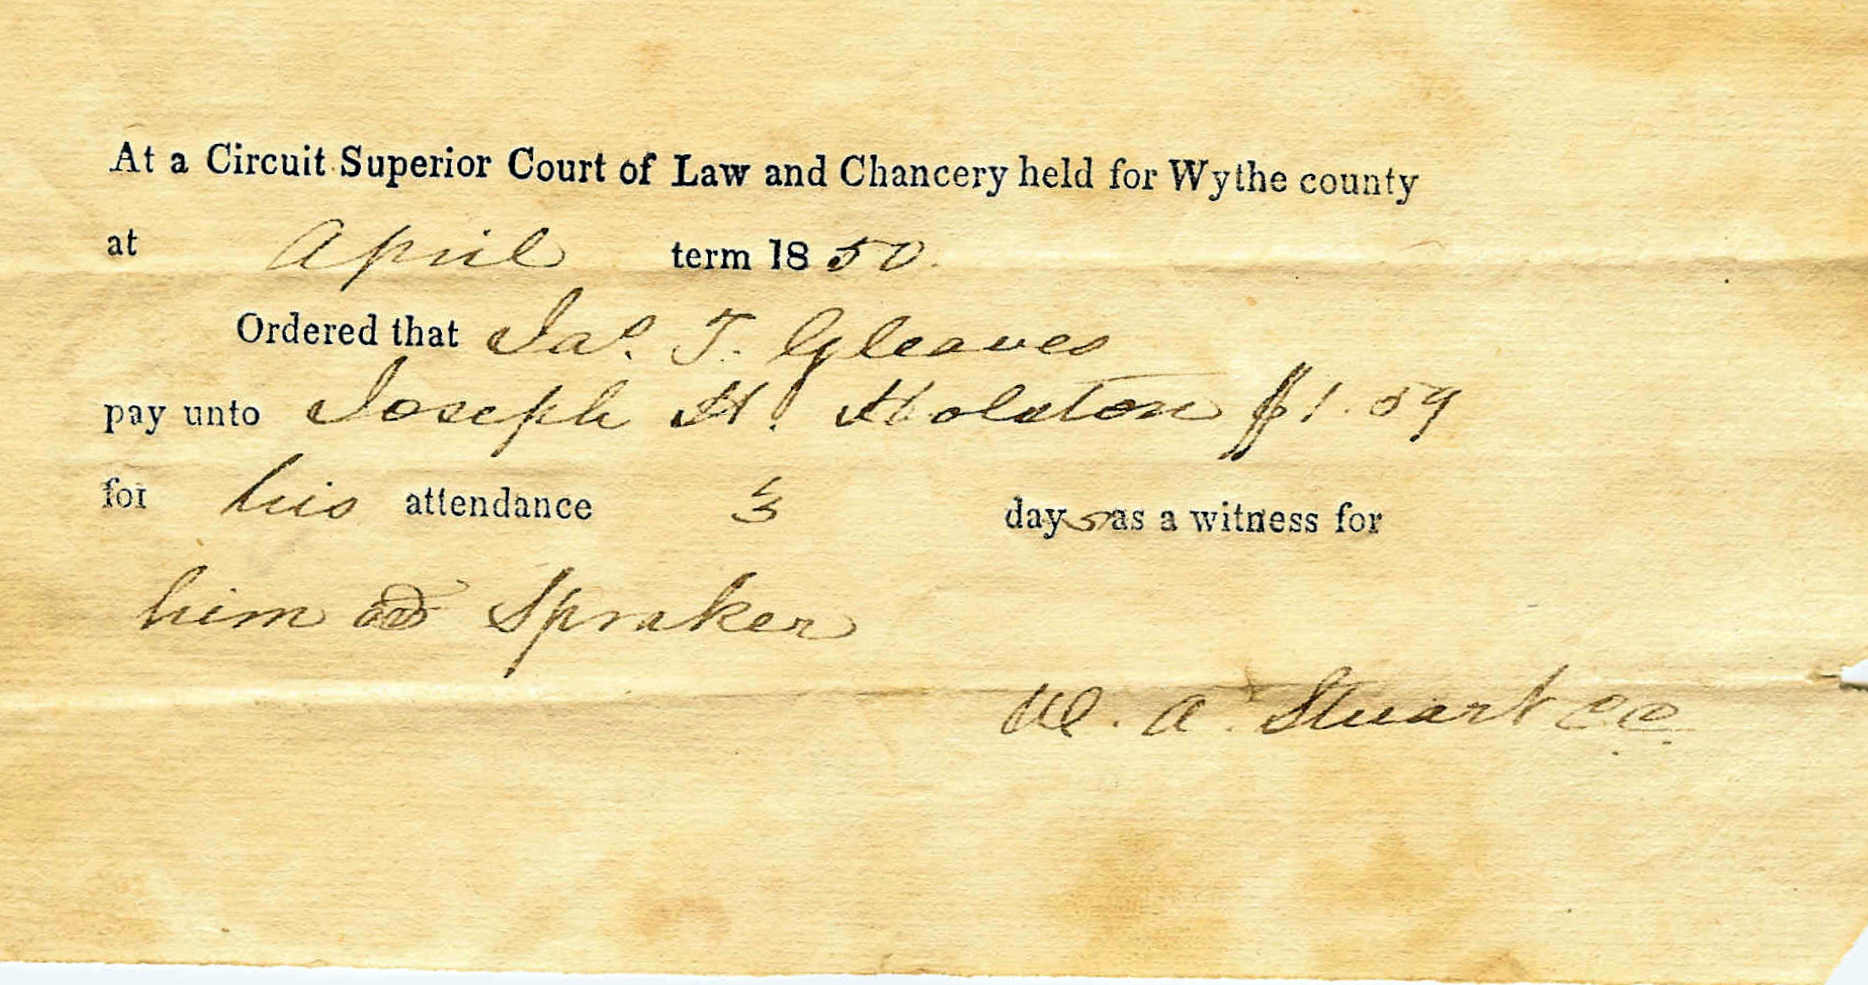 At a Circuit Superior Court of Law and Chancery held for Wythe county
at April term 1850.
Ordered that Jas. T. Gleaves
pay unto Joseph H. Holston $1.59
for his attendance 3 days as a witness for
him ads Spraker
W. A. Stuart CC.